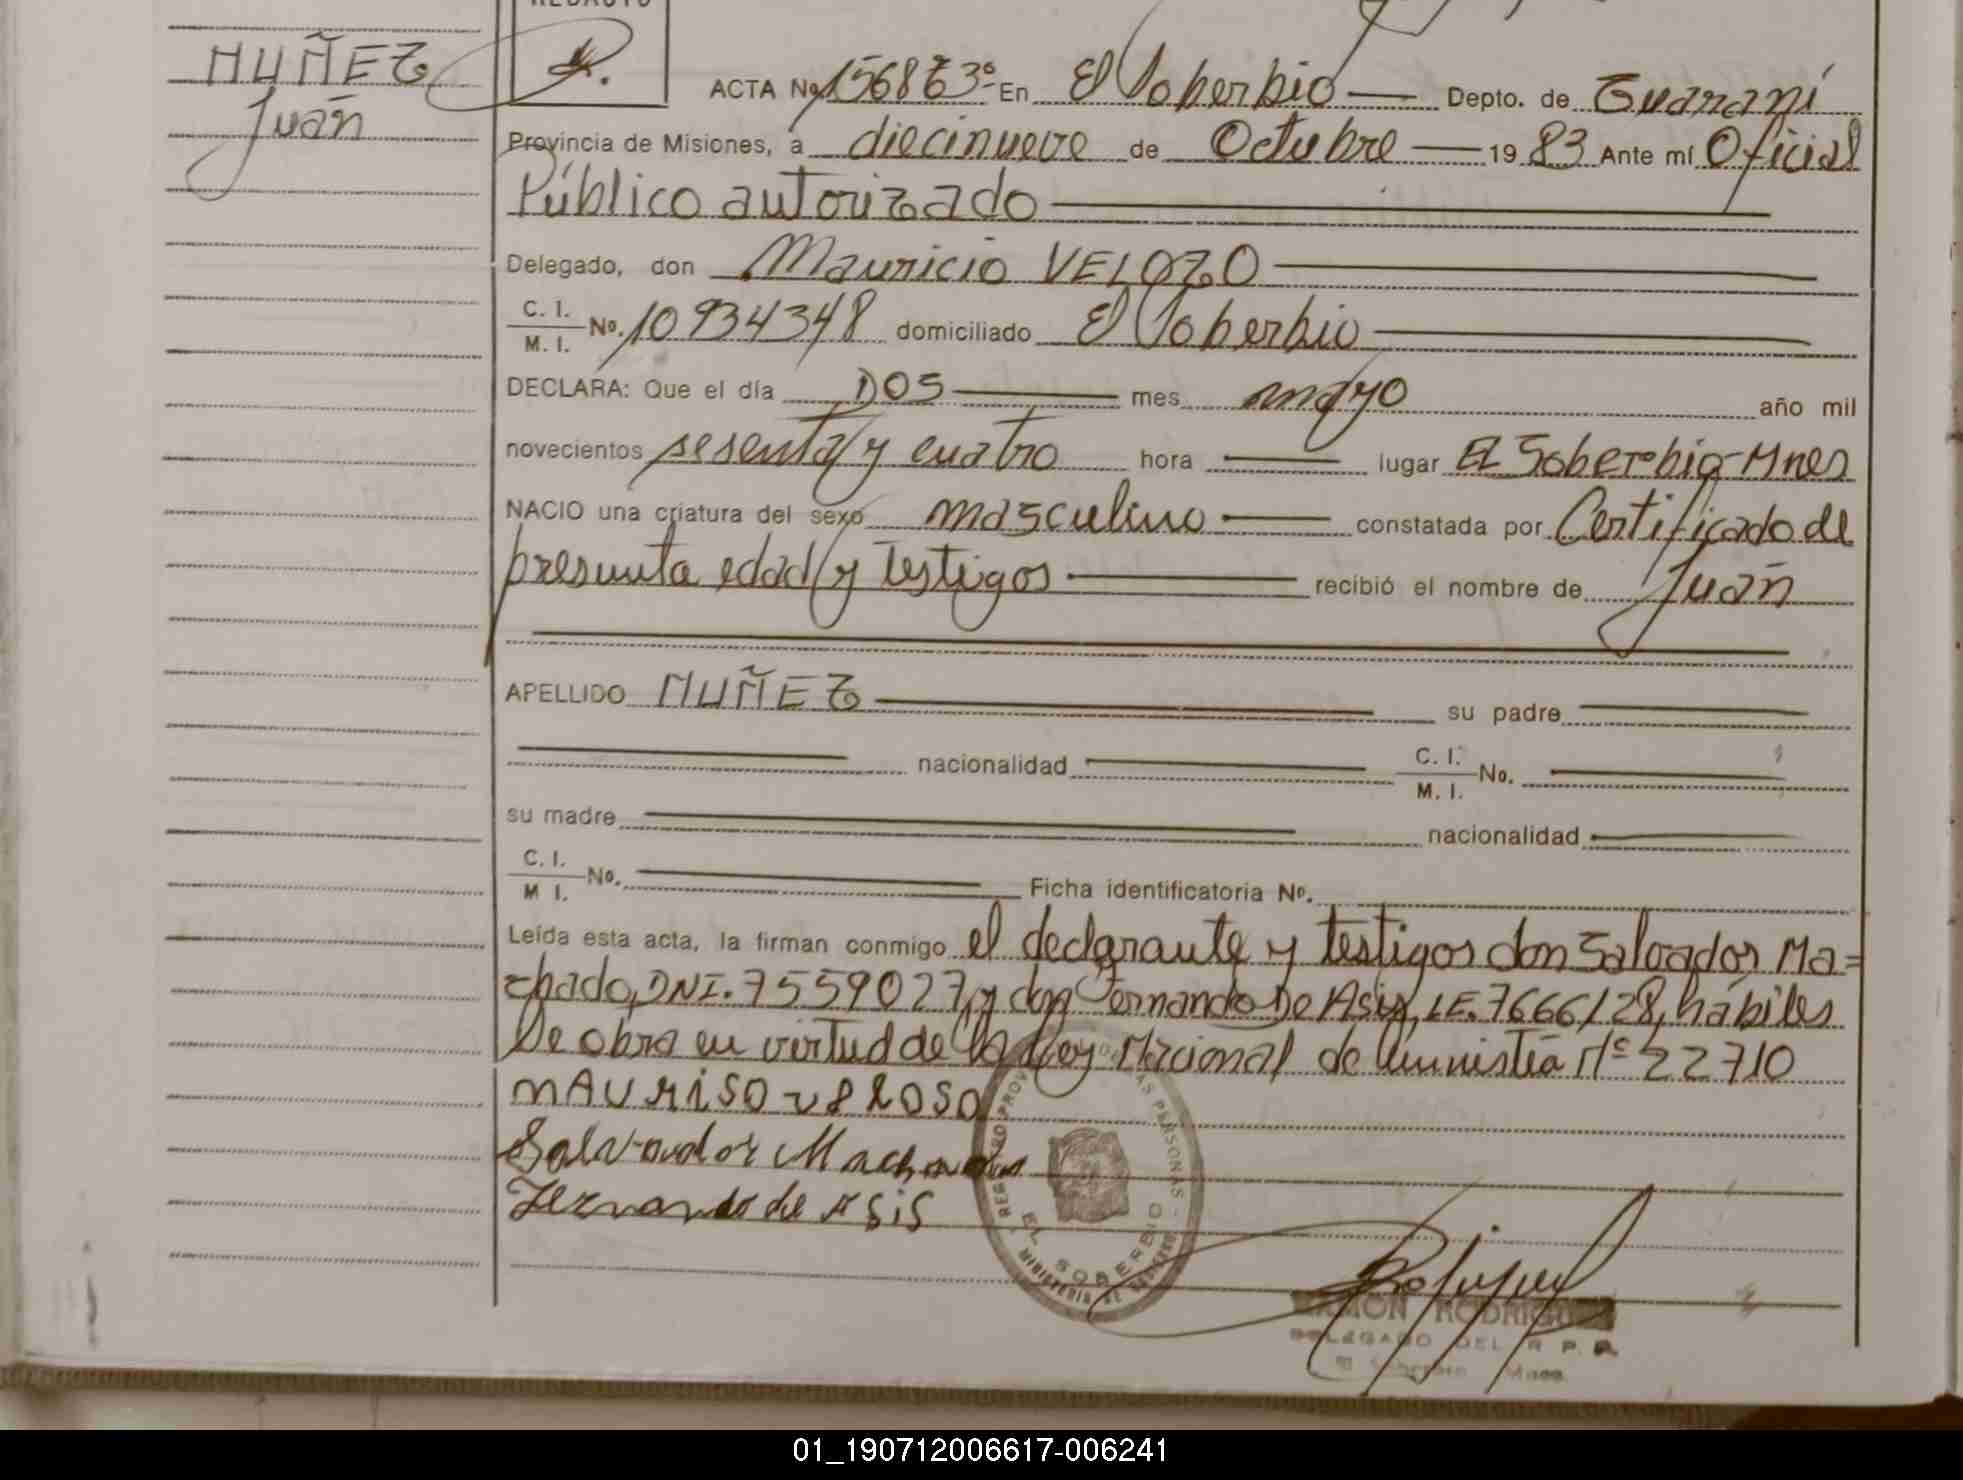 REDACTO
MUÑEZ
Juan
ACTA Nº 156863º En El Soberbio Depto. de Guaraní
Provincia de Misiones, a diecinueve de Octubre 1983 Ante mí Oficial
Público autorizado
Delegado, don Mauricio VELOZO
C. I.
M. I. Nº. 10934348 domiciliado El Soberbio
DECLARA: Que el día DOS mes mayo año mil
novecientos sesenta y cuatro hora lugar El Soberbio-Mnes
NACIO una criatura del sexo masculino constatada por Certificado de
presunta edad y testigos recibió el nombre de Juan
APELLIDO MUÑEZ su padre
nacionalidad C. I.
M. I. No.
su madre nacionalidad
C. I.
M I. No. Ficha identificatoria Nº.
Leída esta acta, la firman conmigo el declarante y testigos don Salvador Ma=
chado, DNI. 7559027, y don Fernando De Asis, LE. 7666128, hábiles
De obra en virtud de la Ley Nacional de Amnistía Nº 22710
MAURiSO VELOSO
Salvador Machado
Fernando de Asis
REGISTRO PROV DE LAS PERSONAS - MINISTERIO DE GOBIERNO
EL SOBERBIO
RAMON RODRIGUEZ
DELEGADO DEL R. P. P.
El Soberbio Mnes.
01_190712006617-006241